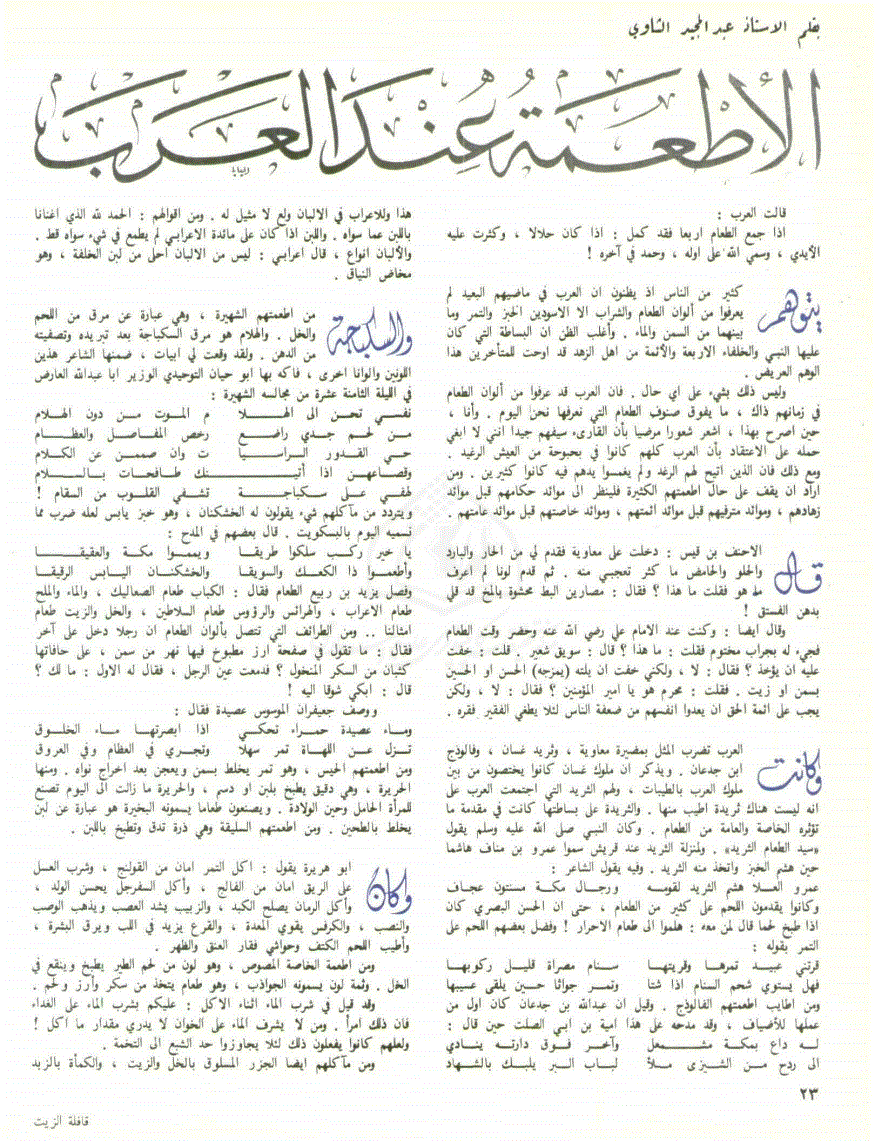 بقلم الاستاذ عبد المجيد الشاوي
الأطعمة عند العرب
قالت العرب :
اذا جمع الطعام اربعا فقد كمل : اذا كان حلالا ، وكثرت عليه
الأيدي ، وسمي الله على اوله ، وحمد في آخره !
يتوهم كثير من الناس اذ يظنون ان العرب في ماضيهم البعيد لم
يعرفوا من ألوان الطعام والشراب الا الاسودين الخبز والتمر وما
بينهما من السمن والماء . وأغلب الظن ان البساطة التي كان
عليها النبي والخلفاء الاربعة والأئمة من اهل الزهد قد اوحت للمتأخرين هذا
الوهم العريض .
وليس ذلك بشيء على اي حال . فان العرب قد عرفوا من ألوان الطعام
في زمانهم ذاك ، ما يفوق صنوف الطعام التي نعرفها نحن اليوم . وأنا ،
حين اصرح بهذا ، اشعر شعورا مرضيا بأن القارىء سيفهم جيدا انني لا ابغي
حمله على الاعتقاد بأن العرب كلهم كانوا في بحبوحة من العيش الرغيد .
ومع ذلك فان الذين اتيح لهم الرغد ولم يغمسوا يدهم فيه كانوا كثيرين . ومن
اراد ان يقف على حال اطعمتهم الكثيرة فلينظر الى موائد حكامهم قبل موائد
زهادهم ، وموائد مترفيهم قبل موائد ائمتهم ، وموائد خاصتهم قبل موائد عامتهم .
قال الاحنف بن قيس : دخلت على معاوية فقدم لي من الحار والبارد
والحلو والحامض ما كثر تعجبي منه . ثم قدم لونا لم اعرف
ما هو فقلت ما هذا ؟ فقال : مصارين البط محشوة بالمخ قد قلي
بدهن الفستق !
وقال ايضا : وكنت عند الامام علي رضي الله عنه وحضر وقت الطعام
فجيء له بجراب مختوم فقلت : ما هذا ؟ قال : سويق شعير . قلت : خفت
عليه ان يؤخذ ؟ فقال : لا ، ولكني خفت ان يلته (يمزجه) الحسن او الحسين
بسمن او زيت . فقلت : محرم هو يا امير المؤمنين ؟ فقال : لا ، ولكن
يجب على ائمة الحق ان يعدوا انفسهم من ضعفة الناس لئلا يطغي الفقير فقره .
وكانت العرب تضرب المثل بمضيرة معاوية ، وثريد غسان ، وفالوذج
ابن جدعان . ويذكر ان ملوك غسان كانوا يختصون من بين
ملوك العرب بالطيبات ، ولهم الثريد التي اجتمعت العرب على
انه ليست هناك ثريدة اطيب منها . والثريدة على بساطتها كانت في مقدمة ما
تؤثره الخاصة والعامة من الطعام . وكان النبي صلى الله عليه وسلم يقول
«سيد الطعام الثريد» . ولمنزلة الثريد عند قريش سموا عمرو بن مناف هاشما
حين هشم الخبز واتخذ منه الثريد . وفيه يقول الشاعر :
عمرو العـلا هشم الثريد لقومـه ورجـال مكـة مسنتون عجـاف
وكانوا يقدمون اللحم على كثير من الطعام ، حتى ان الحسن البصري كان
اذا طبخ لحما قال لمن معه : هلموا الى طعام الاحرار ! وفضل بعضهم اللحم على
التمر بقوله :
قرتني عبيـد تمرهـا وقريتهـا سنـام مصراة قليـل ركوبهـا
فهل يستوي شحم السنام اذا شتا وتمـر جوانا حـين يلقى عسيبها
ومن اطايب اطعمتهم الفالوذج . وقيل ان عبدالله بن جدعان كان اول من
عملها للأضياف ، وقد مدحه على هذا امية بن ابي الصلت حين قال :
لـه داع بمكـة مشمعـل وآخـر فـوق دارتـه ينـادي
الى ردح مـن الشيزى مـلأ لبـاب البـر يلبـك بالشهاد
هذا وللاعراب في الالبان ولع لا مثيل له . ومن اقوالهم : الحمد لله الذي اغنانا
باللبن عما سواه . واللبن اذا كان على مائدة الاعرابي لم يطمع في شيء سواه قط .
والألبان انواع ، قال اعرابي : ليس من الالبان احلى من لبن الخلفة ، وهو
مخاض النياق .
والسكباجة من اطعمتهم الشهيرة ، وهي عبارة عن مرق من اللحم
والخل . والهلام هو مرق السكباجة بعد تبريده وتصفيته
من الدهن . ولقد وقعت لي ابيات ، ضمنها الشاعر هذين
اللونين وألوانا اخرى ، فاكه بها ابو حيان التوحيدي الوزير ابا عبدالله العارض
في الليلة الثامنة عشرة من مجالسه الشهيرة :
نفسي تحـن الى الهـلا م المـوت مـن دون الهـلام
مـن لحـم جـدي راضـع رخص المفـاصـل والعظـام
حـي القـدور الـراسيـا ت وان صممـن عن الكلام
وقصاعهـن اذا أتيـ ـنك طافحـات بالسـلام
لهفي عـلى سكباجـة تشفي القلـوب من السقام !
ويتردد من مآكلهم شيء يقولون له الخشكنان ، وهو خبز يابس لعله ضرب مما
نسميه اليوم بالبسكويت . قال بعضهم في المدح :
يا خير ركـب سلكوا طريقـا ويممـوا مكـة والعقيقـا
وأطعمـوا ذا الكعـك والسويقـا والخشكنـان اليـابس الرقيقـا
وفصل يزيد بن ربيع الطعام فقال : الكباب طعام الصعاليك ، والماء والملح
طعام الاعراب ، والهرائس والرؤوس طعام السلاطين ، والخل والزيت طعام
امثالنا .. ومن الطرائف التي تتصل بألوان الطعام ان رجلا دخل على آخر
فقال : ما تقول في صفحة ارز مطبوخ فيها نهر من سمن ، على حافاتها
كثبان من السكر المنخول ؟ فدمعت عين الرجل ، فقال له الاول : ما لك ؟
قال : ابكي شوقا اليه !
ووصف جعيفران الموسوس عصيدة فقال :
ومـاء عصيدة حمـراء تحكـي اذا ابصرتهـا مـاء الخلـوق
تـزل عـن اللهـاة تمر سهلا وتجـري في العظام وفي العروق
ومن اطعمتهم الحيس ، وهو تمر يخلط بسمن ويعجن بعد اخراج نواه . ومنها
الحريرة ، وهي دقيق يطبخ بلبن او دسم ، والحريرة ما زالت الى اليوم تصنع
للمرأة الحامل وحين الولادة . ويصنعون طعاما يسمونه البخيرة هو عبارة عن لبن
يخلط بالطحين . ومن اطعمتهم السليقة وهي ذرة تدق وتطبخ باللبن .
وكان ابو هريرة يقول : اكل التمر امان من القولنج ، وشرب العسل
على الريق امان من الفالج ، وأكل السفرجل يحسن الولد ،
وأكل الرمان يصلح الكبد ، والزبيب يشد العصب ويذهب الوصب
والنصب ، والكرفس يقوي المعدة ، والقرع يزيد في اللب ويرق البشرة ،
وأطيب اللحم الكتف وحواشي فقار العنق والظهر .
ومن اطعمة الخاصة المصوص ، وهو لون من لحم الطير يطبخ وينقع في
الخل . وثمة لون يسمونه الجواذب ، وهو طعام يتخذ من سكر وأرز ولحم .
وقد قيل في شرب الماء اثناء الاكل : عليكم بشرب الماء على الغداء
فان ذلك امرأ . ومن لا يشرف الماء على الخوان لا يدري مقدار ما اكل !
ولعلهم كانوا يفعلون ذلك لئلا يجاوزوا حد الشبع الى التخمة .
ومن مآكلهم ايضا الجزر المسلوق بالخل والزيت ، والكمأة بالزبد
٢٣
قافلة الزيت